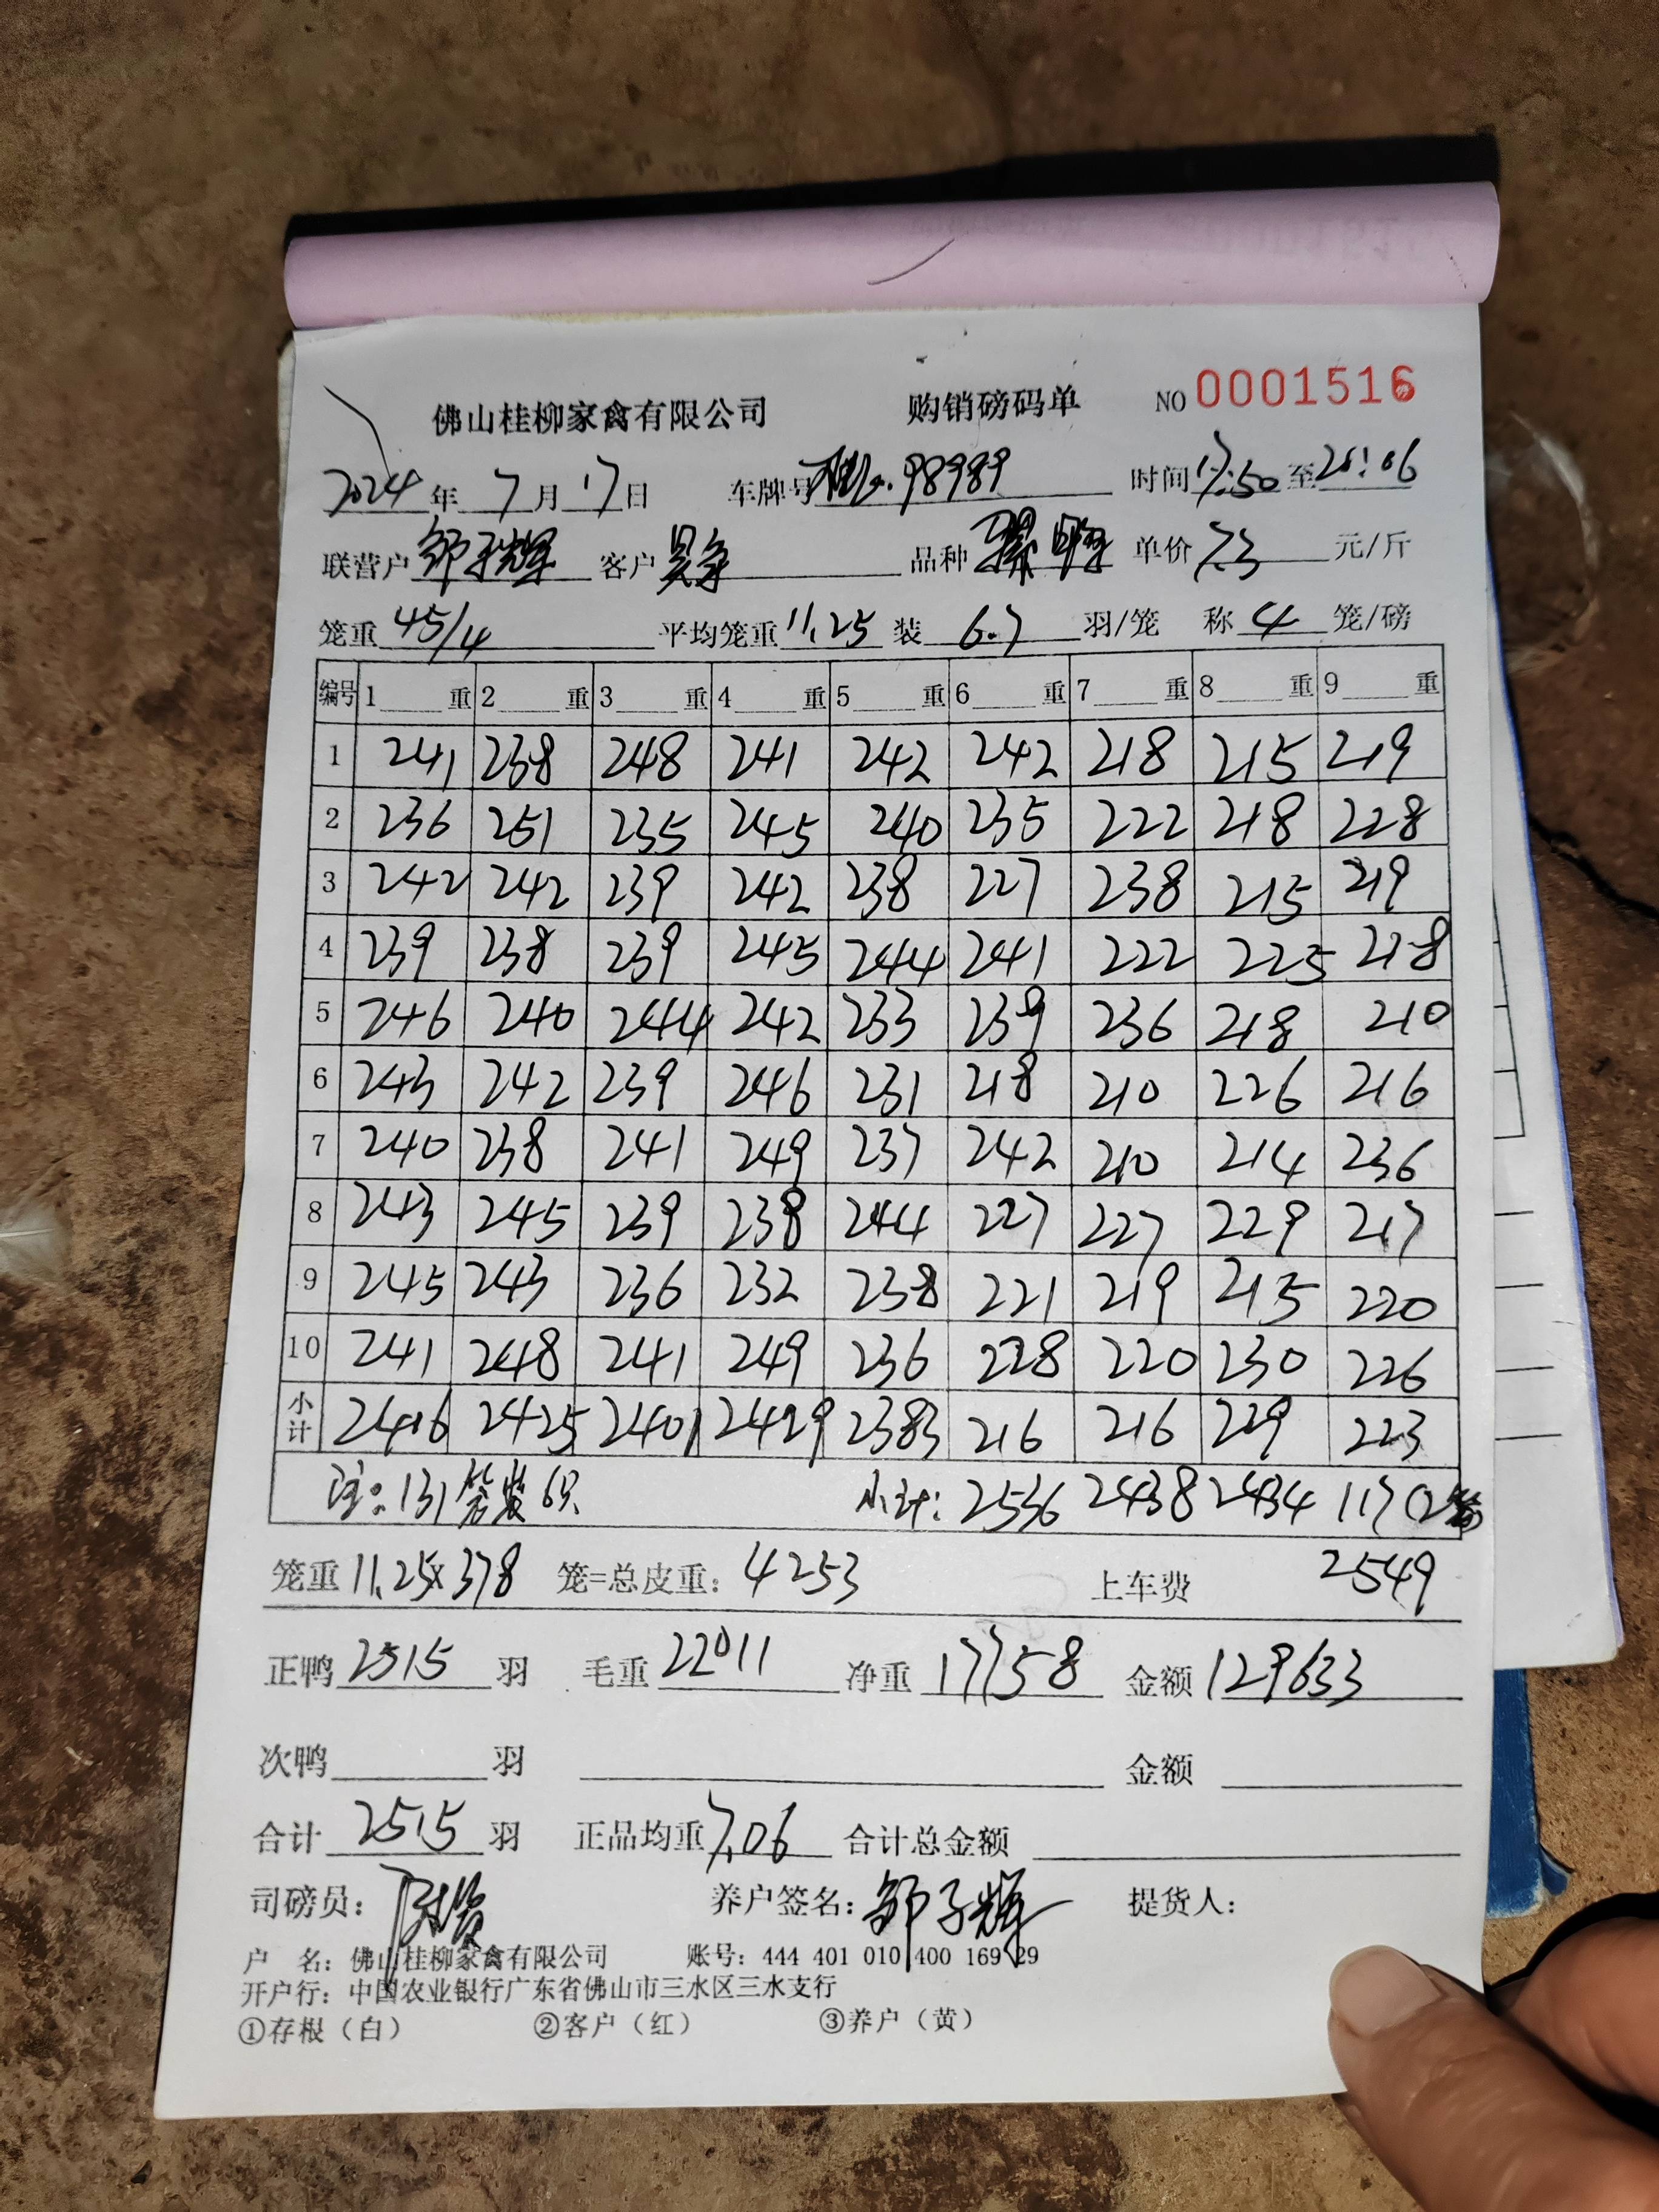 佛山桂柳家禽有限公司 购销磅码单 NO 0001516
2024年 7月 17日 车牌号 98989 时间 17:50 至 20:06
联营户 邹子辉 客户 品种 单价 7.3 元/斤
笼重 45/4 平均笼重 11.25 装 6.7 羽/笼 称 4 笼/磅
编号 1 重 2 重 3 重 4 重 5 重 6 重 7 重 8 重 9 重
1 241 238 248 241 242 242 218 215 219
2 236 251 235 245 240 235 222 218 228
3 242 242 239 242 238 227 238 215 219
4 239 238 239 245 244 241 222 225 218
5 246 240 244 242 233 239 236 218 210
6 243 242 239 246 231 218 210 226 216
7 240 238 241 249 237 242 210 214 236
8 243 245 239 238 244 227 227 229 217
9 245 243 236 232 238 221 219 215 220
10 241 248 241 249 236 228 220 230 226
小计 2416 2425 2401 2429 2383 216 216 229 223
注:131笼装6只 小计: 2536 2438 2434
笼重 11.25×378 笼=总皮重: 4253 上车费 2549
正鸭 2515 羽 毛重 22011 净重 17758 金额 129633
次鸭 羽 金额
合计 2515 羽 正品均重 7.06 合计总金额
司磅员: 养户签名: 邹子辉 提货人:
户 名: 佛山桂柳家禽有限公司 账号: 444 401 010 400 169 29
开户行: 中国农业银行广东省佛山市三水区三水支行
①存根（白） ②客户（红） ③养户（黄）